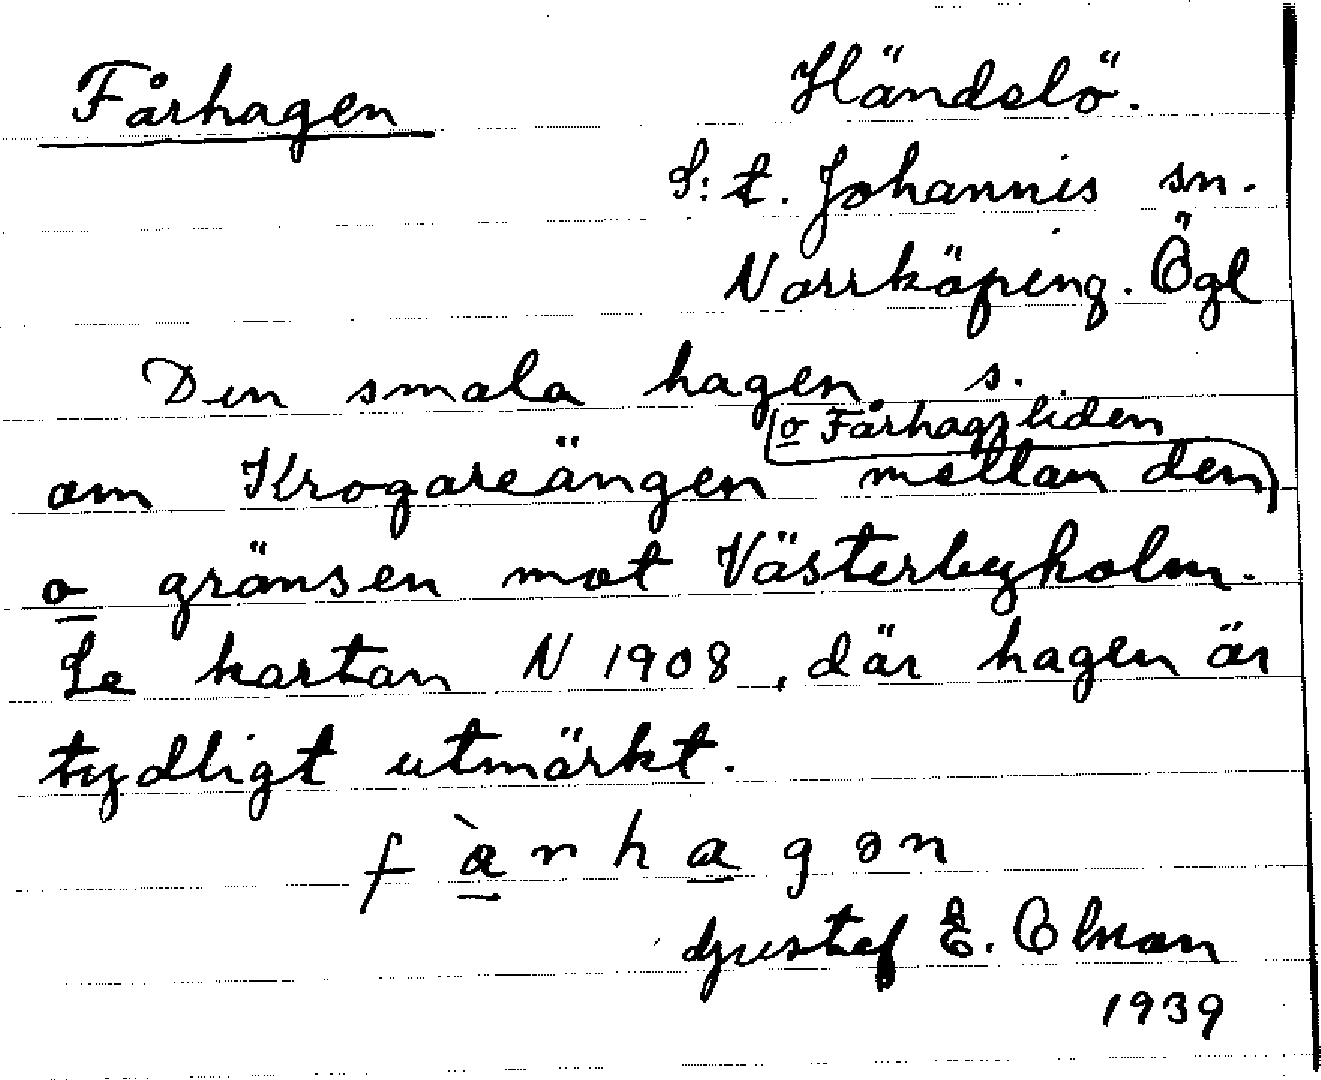 Fårhagen
Händelö.
S:t. Johannis sn.
Norrköping. Ögl
Den smala hagen s.
o Fårhagsliden
om Krogareängen mellan den
o gränsen mot Västerbyholm.
Se kartan N 1908, där hagen är
tydligt utmärkt.
f à r h a g ə n
Gustef E. Olsson
1939